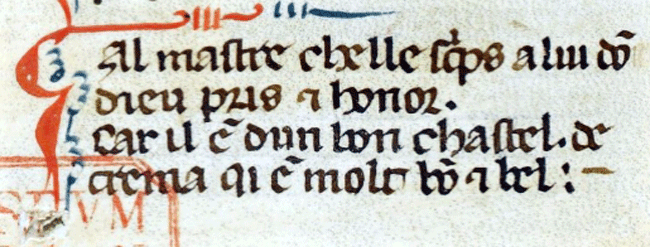 Al maſtre chelle ſc̾ps a lui dō
dieu pris ⁊ honor.
Car il ē dun bon chaſtel. de
crema qi ē molt bō ⁊ bel :
VM